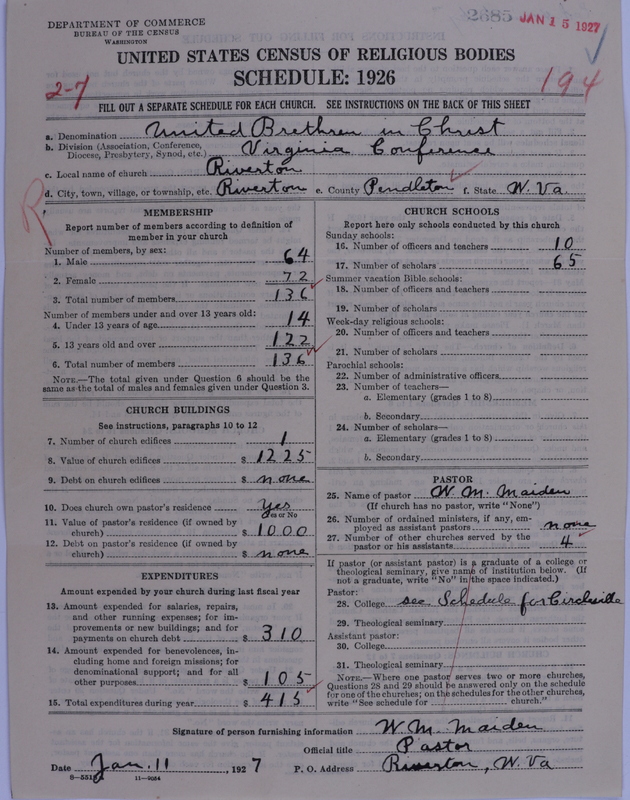 DEPARTMENT OF COMMERCE
BUREAU OF THE CENSUS
WASHINGTON
2685 JAN 15 1927
UNITED STATES CENSUS OF RELIGIOUS BODIES
SCHEDULE: 1926
2-7
194
FILL OUT A SEPARATE SCHEDULE FOR EACH CHURCH. SEE INSTRUCTIONS ON THE BACK OF THIS SHEET
a. Denomination United Brethren in Christ
b. Division (Association, Conference, Diocese, Presbytery, Synod, etc.) Virginia Conference
c. Local name of church Riverton
d. City, town, village, or township, etc. Riverton e. County Pendleton f. State W. Va.
R
MEMBERSHIP
Report number of members according to definition of
member in your church
Number of members, by sex:
1. Male 64
2. Female 72
3. Total number of members 136
Number of members under and over 13 years old:
4. Under 13 years of age 14
5. 13 years old and over 122
6. Total number of members 136
NOTE.—The total given under Question 6 should be
same as the total of males and females given under Question 3.
CHURCH BUILDINGS
See instructions, paragraphs 10 to 12
7. Number of church edifices 1
8. Value of church edifices $ 1225
9. Debt on church edifices $ none
10. Does church own pastor's residence Yes
Yes or No
11. Value of pastor's residence (if owned by
church) $ 1000
12. Debt on pastor's residence (if owned by
church) $ none
EXPENDITURES
Amount expended by your church during last fiscal year
13. Amount expended for salaries, repairs,
and other running expenses; for im-
provements or new buildings; and for
payments on church debt $ 310
14. Amount expended for benevolences, in-
cluding home and foreign missions; for
denominational support; and for all
other purposes $ 105
15. Total expenditures during year $ 415
CHURCH SCHOOLS
Report here only schools conducted by this church
Sunday schools:
16. Number of officers and teachers 10
17. Number of scholars 65
Summer vacation Bible schools:
18. Number of officers and teachers
19. Number of scholars
Week-day religious schools:
20. Number of officers and teachers
21. Number of scholars
Parochial schools:
22. Number of administrative officers
23. Number of teachers—
a. Elementary (grades 1 to 8)
b. Secondary
24. Number of scholars—
a. Elementary (grades 1 to 8)
b. Secondary
PASTOR
25. Name of pastor W. M. Maiden
(If church has no pastor, write "None")
26. Number of ordained ministers, if any, em-
ployed as assistant pastors none
27. Number of other churches served by the
pastor or his assistants 4
If pastor (or assistant pastor) is a graduate of a college or
theological seminary, give name of institution below. (If
not a graduate, write "No" in the space indicated.)
Pastor:
28. College see Schedule for Circleville
29. Theological seminary
Assistant pastor:
30. College
31. Theological seminary
NOTE.—Where one pastor serves two or more churches,
Questions 28 and 29 should be answered only on the schedule
for one of the churches; on the schedules for the other churches,
write "See schedule for church."
Signature of person furnishing information W. M. Maiden
Official title Pastor
Date Jan. 11, 1927 P. O. Address Riverton, W. Va
11—9034